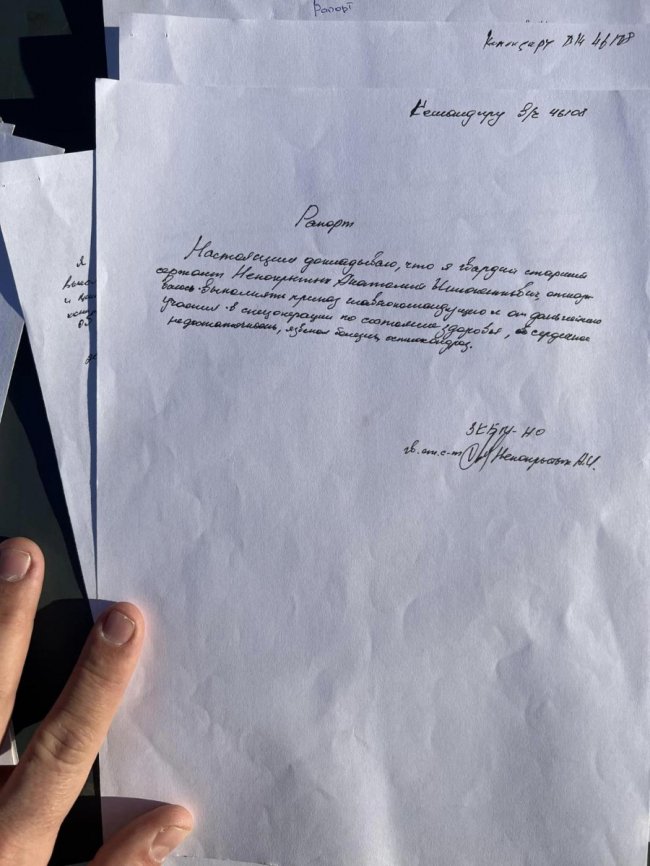 Рапорт
Командиру В/ч 46108
Командиру В/ч 46108
Рапорт
Настоящим докладываю, что я гвардии старший
сержант Непокрытых Анатолий отказы
ваюсь выполнять приказ главнокомандующего и от дальнейшего
участия в спецоперации по состоянию здоровья, сердечная
недостаточность, язвенная болезнь, остеохондроз.
Я
и
ЗКБМ-НО
гв. ст. с-т Непокрытых А.И.